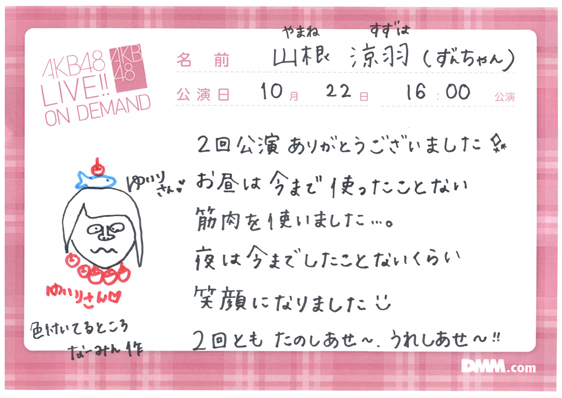 AKB48
LIVE!!
ON DEMAND
AKB
48
やまね すずは
名前 山根 涼羽 (ずんちゃん)
公演日 10月 22日 16:00 公演
2回公演ありがとうございました
お昼は今まで使ったことない
筋肉を使いました…。
夜は今までしたことないくらい
笑顔になりました
2回とも たのしあせ〜、うれしあせ〜!!
ゆいり
さん
ゆいりさん♡
色付いてるところ
なーみん作
DMM.com